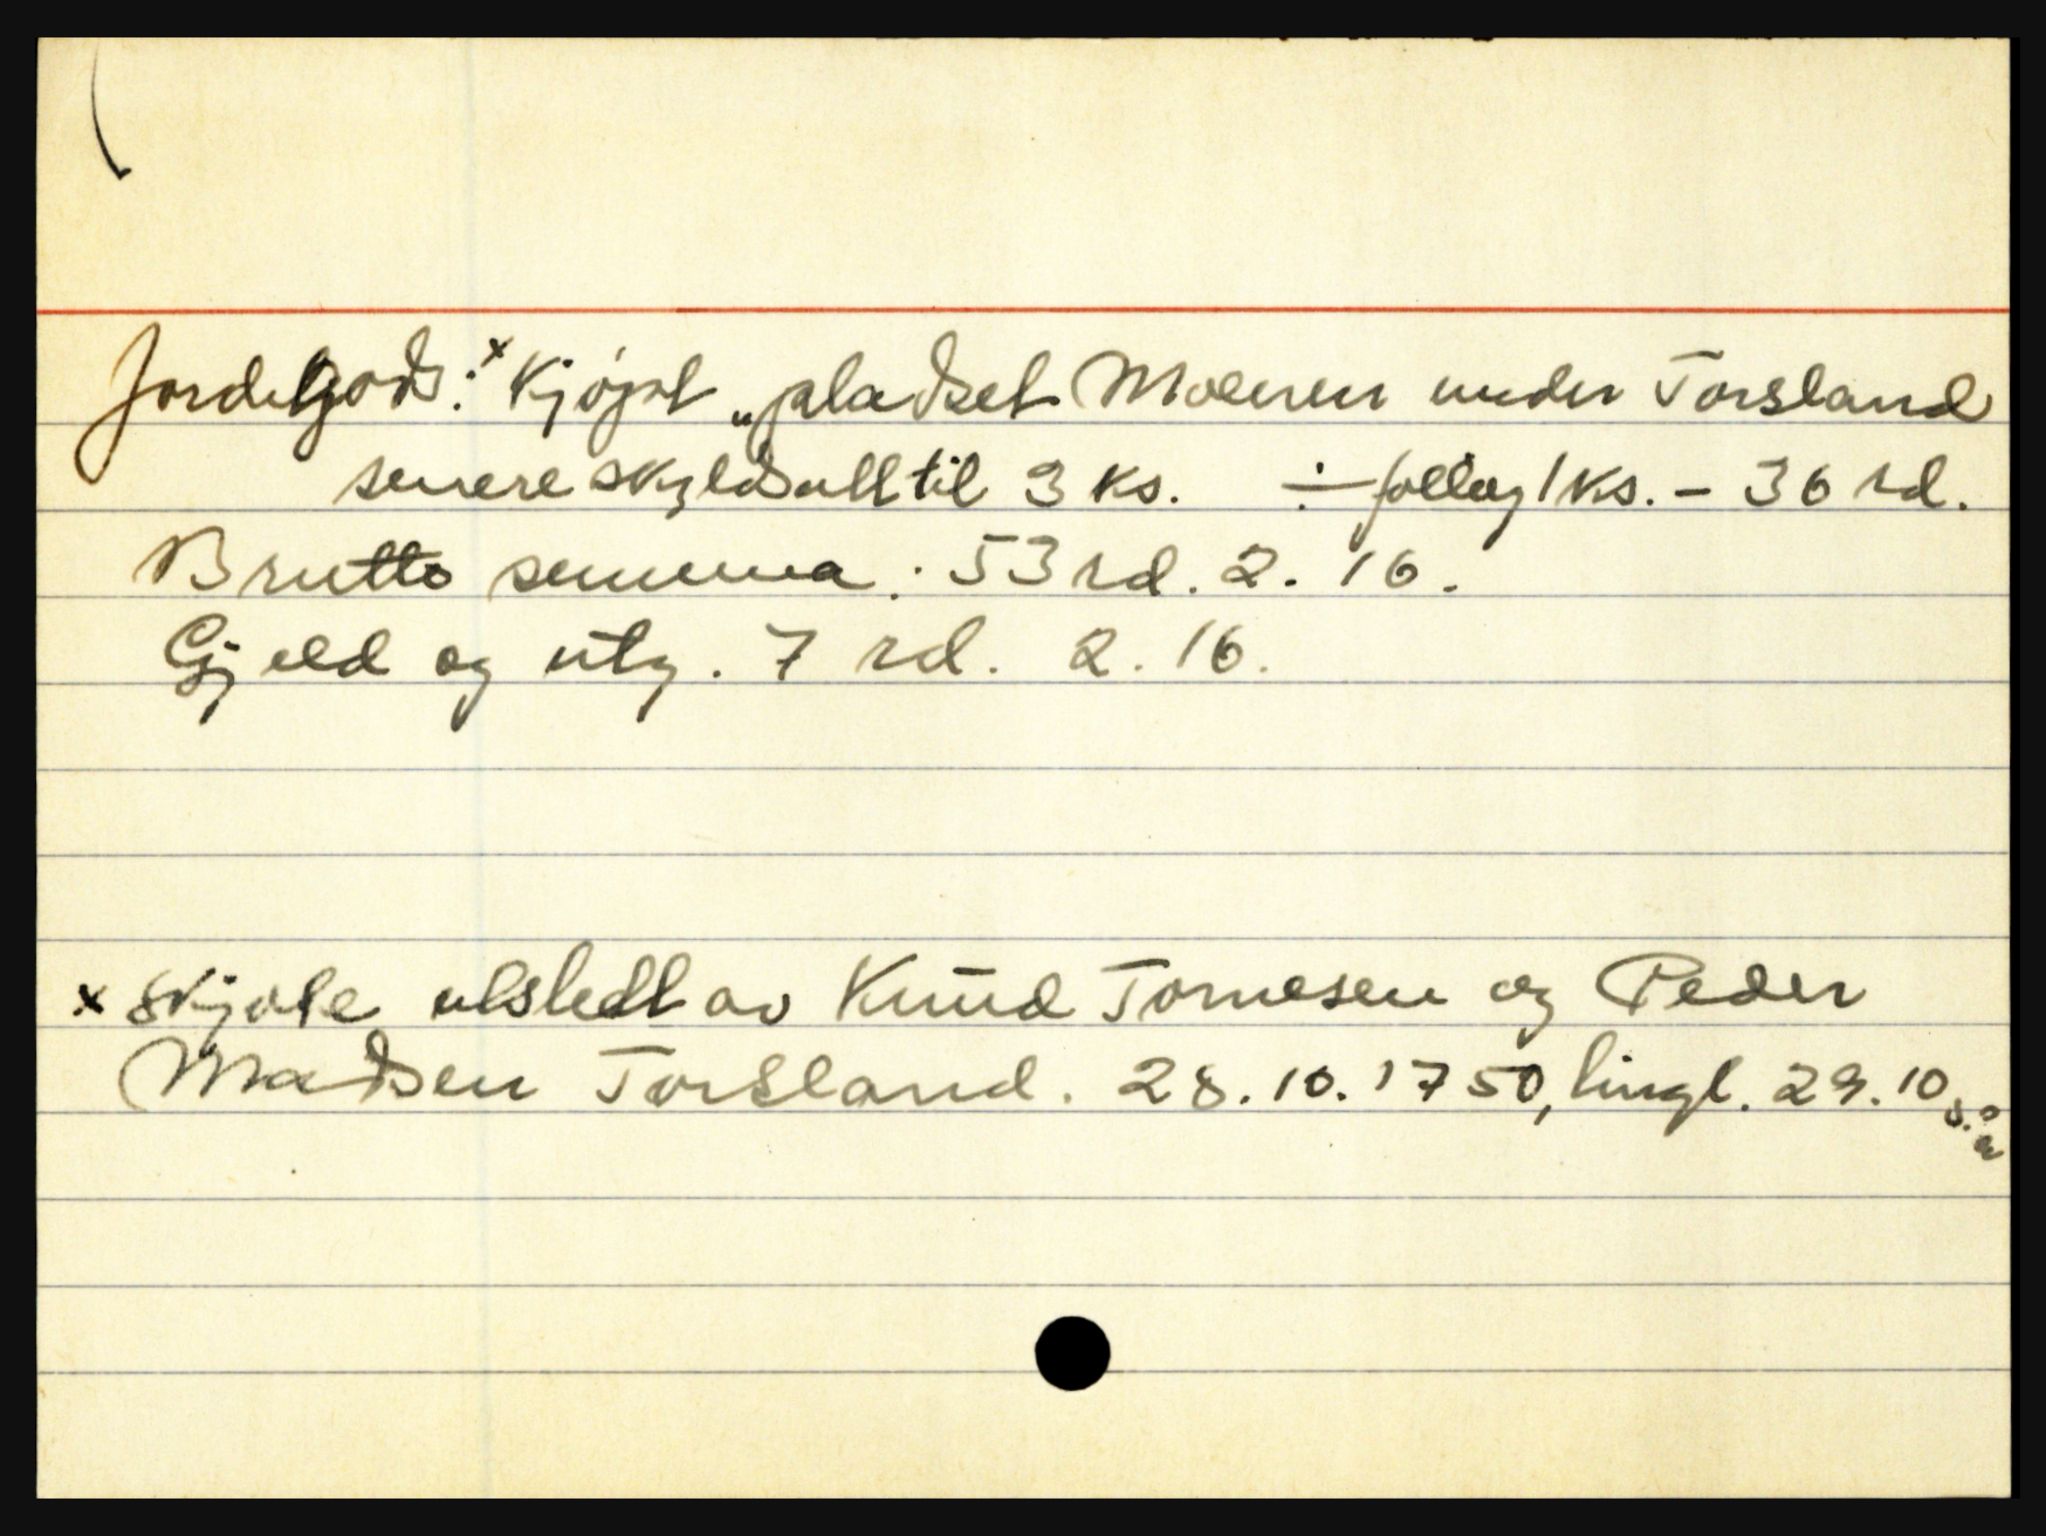 Jordegods:ˣ Kjøpt „pladset Moenen under Torsland
senere skyldsatt til 3 ks. ÷ follog 1 ks. – 36 rd.
Brutto summa: 53 rd. 2. 16.
Gjeld og utg. 7 rd. 2. 16.
x Skjøte utstedt av Knud Tornesen og Peder
Madsen Torsland. 28.10.1750, tingl. 29.10 s.å.